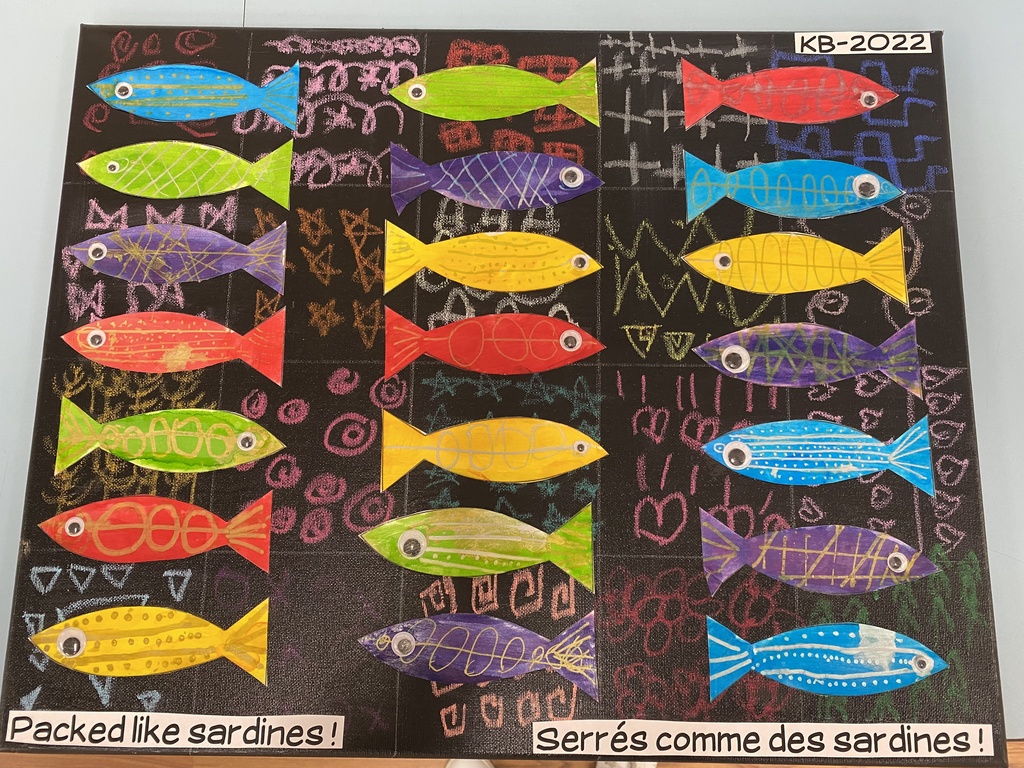 KB-2022
Packed like sardines !
Serrés comme des sardines !